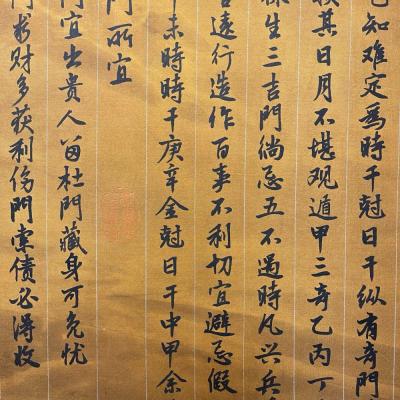 知难定爲時干尅日干纵有奇門
其日月不堪观遁甲三奇乙丙丁
生三吉門倘忌五不遇時凡兴兵
遠行造作百事不利切宜避忌假
未時時干庚辛金尅日干中甲余
门所宜
宜出贵人留杜門藏身可免忧
求财多获利伤門索债必得收